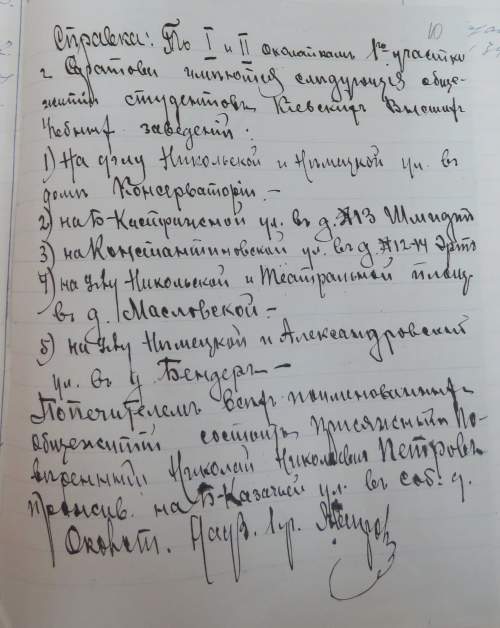 10
Справка: По I и II околоткамъ 1го участка
г Саратова имѣются слѣдующія обще-
житія студентовъ Кіевскихъ Высшихъ
Учебныхъ заведеній:
1) На углу Никольской и Нѣмецкой ул. въ
домѣ Консерваторіи. –
2) на Б-Кострижной ул. въ д. №13 Шмидтъ
3) на Константиновской ул. въ д. №12-14 Эртъ
4) на углу Никольской и Театральной площ.
въ д. Масловской –
5) на углу Нѣмецкой и Александровской
ул. въ д Бендеръ –
Попечителемъ всѣхъ поименованныхъ
общежитій состоитъ присяжный По-
вѣренный Николай Николаевич Петровъ
прожив. на Б-Казачей ул. въ соб. д.
Околот. Надз. 1 уч.